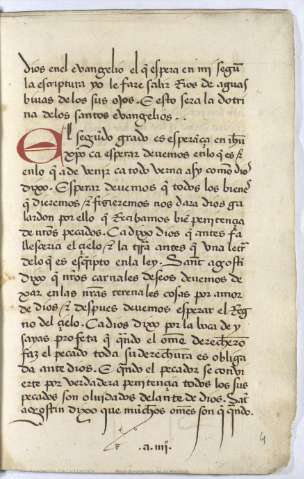 dios enel evangelio el q̃ espera en mi segũ
la escriptura yo le fare salir Rios de aguas
bivas de los sus ojos. E esto sera la dotri
na delos santos evangelios..
El segũdo grado es esperãça en ihũ
xp̃o ca esperar devemos enlo q̃ es &
enlo q̃ a de venir ca todo verna asy como dios
dixo. Esperar devemos q̃ todos los biene
q̃ dieremos & fizieremos nos dara dios ga
lardon por ello q̃ Resçibamos biẽ penitençia
de nr̃os pecados. Ca dixo dios q̃ antes fa
llesçeria el çielo & la tr̃ra antes q̃ una letr̃
delo q̃ es escripto enla ley. Sant agosti
dixo q̃ nr̃os carnales deseos devemos de
xar en las nr̃as terenales cosas por amor
de dios & despues devemos esperar el Reg
no del çielo. Ca dios dixo por la boca de y
sayas profeta q̃ q̃ndo el om̃e derechero
faz el pecado toda su derechura es obliga
da ante dios. E q̃ndo el pecador se convi
erte por verdadera penitençia todos los sus
pecados son olvidados delante de dios. Sãt
agostin dixo que muchos om̃es son q̃ q̃ndo.
.a.iiij.
4